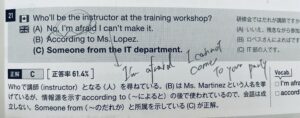 21
Who'll be the instructor at the training workshop?
(A) No, I'm afraid I can't make it.
(B) According to Ms. Lopez.
(C) Someone from the IT department.
研修会では
(A) い
(B) ロペスさんによれば
(C) IT部の人です。
I'm afraid I cannot
come
to your party
正解 C 正答率 61.4%
Vocab.
Whoで講師 (instructor) となる (人) を尋ねている。(B)は Ms. Martinezという人名を挙
げているが、情報源を示す according to (〜によると) の後で使われているので、会話は成
立しない。Someone from (〜のだれか) と所属を示している (C) が正解。